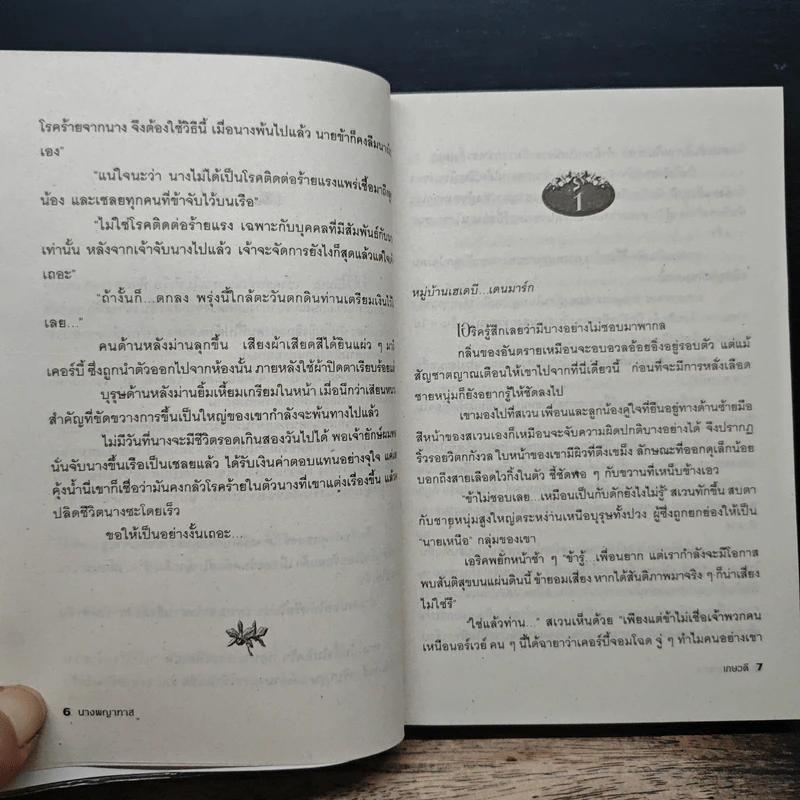 โรคร้ายจากนาง จึงต้องใช้วิธีนี้ เมื่อนางพ้นไปแล้ว นายข้าก็คงลืมนาง
เอง”
“แน่ใจนะว่า นางไม่ได้เป็นโรคติดต่อร้ายแรงแพร่เชื้อมาถึง
น้อง และเชลยทุกคนที่ข้าจับไว้บนเรือ”
“ไม่ใช่โรคติดต่อร้ายแรง เฉพาะกับบุคคลที่มีสัมพันธ์กับ
เท่านั้น หลังจากเจ้าจับนางไปแล้ว เจ้าจะจัดการยังไงก็สุดแล้วแต่ใจ
เถอะ”
“ถ้างั้นก็...ตกลง พรุ่งนี้ใกล้ตะวันตกดินท่านเตรียมเงินไว้
เลย...”
คนด้านหลังม่านลุกขึ้น เสียงผ้าเสียดสีได้ยินแผ่ว ๆ
เคอร์บี้ ซึ่งถูกนำตัวออกไปจากห้องนั้น ภายหลังใช้ผ้าปิดตาเรียบร้อย
บุรุษด้านหลังม่านยิ้มเหี้ยมเกรียมในหน้า เมื่อนึกว่าเสี้ยนหนาม
สำคัญที่ขัดขวางการขึ้นเป็นใหญ่ของเขากำลังจะพ้นทางไปแล้ว
ไม่มีวันที่นางจะมีชีวิตรอดเกินสองวันไปได้ พอเจ้ายักษ์ผม
นั่นจับนางขึ้นเรือเป็นเชลยแล้ว ได้รับเงินค่าตอบแทนอย่างจุใจ
คุ้งน้ำนี่เขาก็เชื่อว่ามันคงกลัวโรคร้ายในตัวนางที่เขาแต่งเรื่องขึ้น แล้ว
ปลิดชีวิตนางซะโดยเร็ว
ขอให้เป็นอย่างงั้นเถอะ...
6 นางพญาทาส
1
หมู่บ้านเฮเดบี...เดนมาร์ก
เอริครู้สึกเลยว่ามีบางอย่างไม่ชอบมาพากล
กลิ่นของอันตรายเหมือนจะอบอวลอ้อยอิ่งอยู่รอบตัว แต่แม้
สัญชาตญาณเตือนให้เขาไปจากที่นี่เดี๋ยวนี้ ก่อนที่จะมีการหลั่งเลือด
ชายหนุ่มก็ยังอยากรู้ให้ชัดลงไป
เขามองไปที่สเวน เพื่อนและลูกน้องคู่ใจที่ยืนอยู่ทางด้านซ้ายมือ
สีหน้าของสเวนเองก็เหมือนจะจับความผิดปกติบางอย่างได้ จึงปรากฏ
ริ้วรอยวิตกกังวล ใบหน้าของเขามีผิวที่ตึงเขม็ง ลักษณะที่ออกดุเล็กน้อย
บอกถึงสายเลือดไวกิ้งในตัว ชี้ชัดพอ ๆ กับขวานที่เหน็บข้างเอว
“ข้าไม่ชอบเลย...เหมือนเป็นกับดักยังไงไม่รู้” สเวนทักขึ้น สบตา
กับชายหนุ่มสูงใหญ่ตระหง่านเหนือบุรุษทั้งปวง ผู้ซึ่งถูกยกย่องให้เป็น
“นายเหนือ” กลุ่มของเขา
เอริคพยักหน้าช้า ๆ “ข้ารู้...เพื่อนยาก แต่เรากำลังจะมีโอกาส
พบสันติสุขบนแผ่นดินนี้ ข้ายอมเสี่ยง หากได้สันติภาพมาจริง ๆ ก็น่าเสี่ยง
ไม่ใช่รึ”
“ใช่แล้วท่าน...” สเวนเห็นด้วย “เพียงแต่ข้าไม่เชื่อเจ้าพวกคน
เหนือนอร์เวย์ คน ๆ นี้ได้ฉายาว่าเคอร์บี้จอมโฉด จู่ ๆ ทำไมคนอย่างเขา
เกษวดี 7